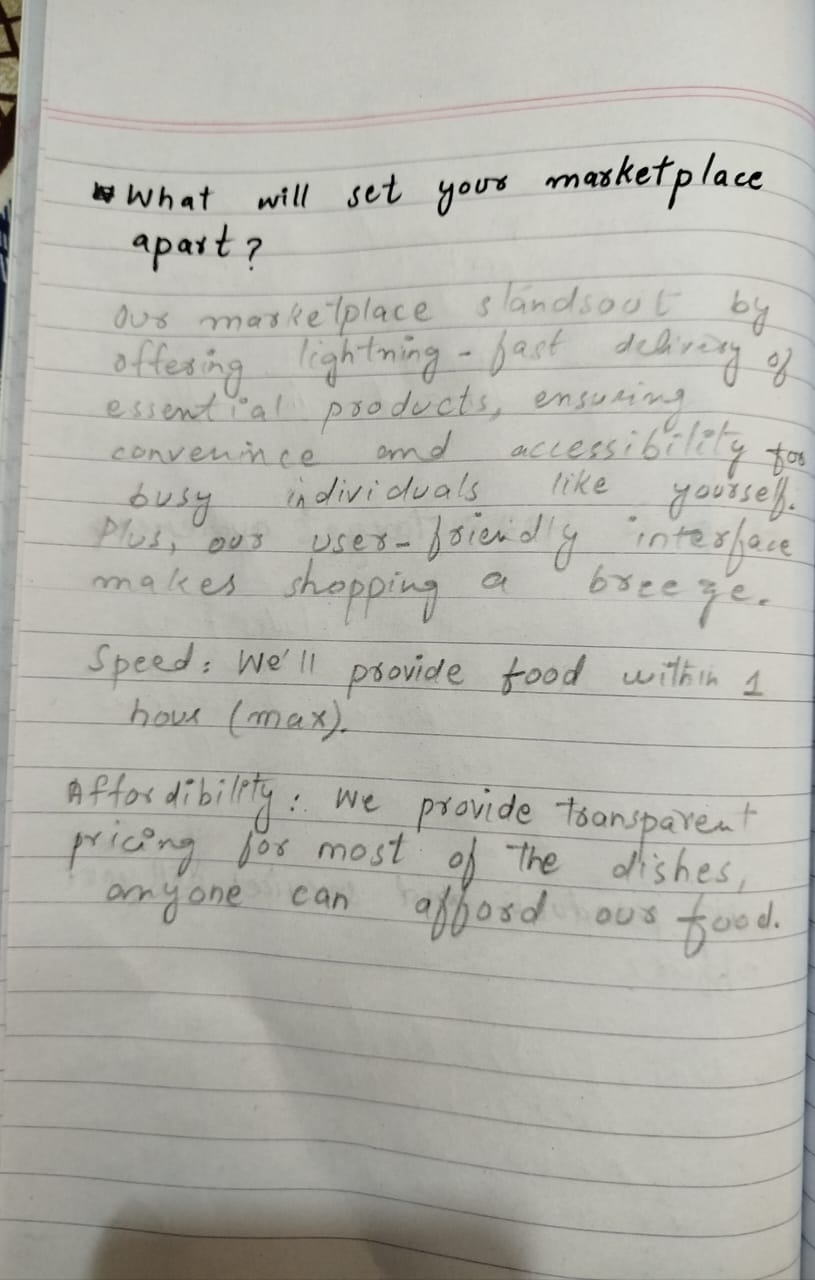 What will set your marketplace
apart?
Our marketplace standsout by
offering lightning-fast delivery of
essential products, ensuring
convenince and accessibility for
busy individuals like yourself.
Plus, our user-friendly interface
makes shopping a breeze.
Speed: We'll provide food within 1
hour (max).
Affordibility: We provide transparent
pricing for most of the dishes,
anyone can afford our food.